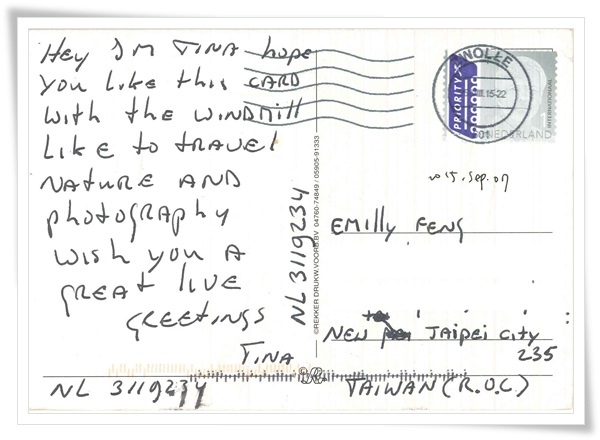 Hey Im TINA hope
you like this CARD
with the windmill
Like to travel
NATURE AND
photography
wish you A
great live
GREETINGS
TINA
NL 3119234
NL 3119234
©REKKER DRUKW.VOORB.BV 04760-74849 / 05905-91333
WOLLE
.III.15-22
PRIORITY
INTERNATIONAAL
1
NEDERLAND
2015.Sep.07
EMILLY FENG
NEW TAIPEI CITY
235
TAIWAN (R.O.C)